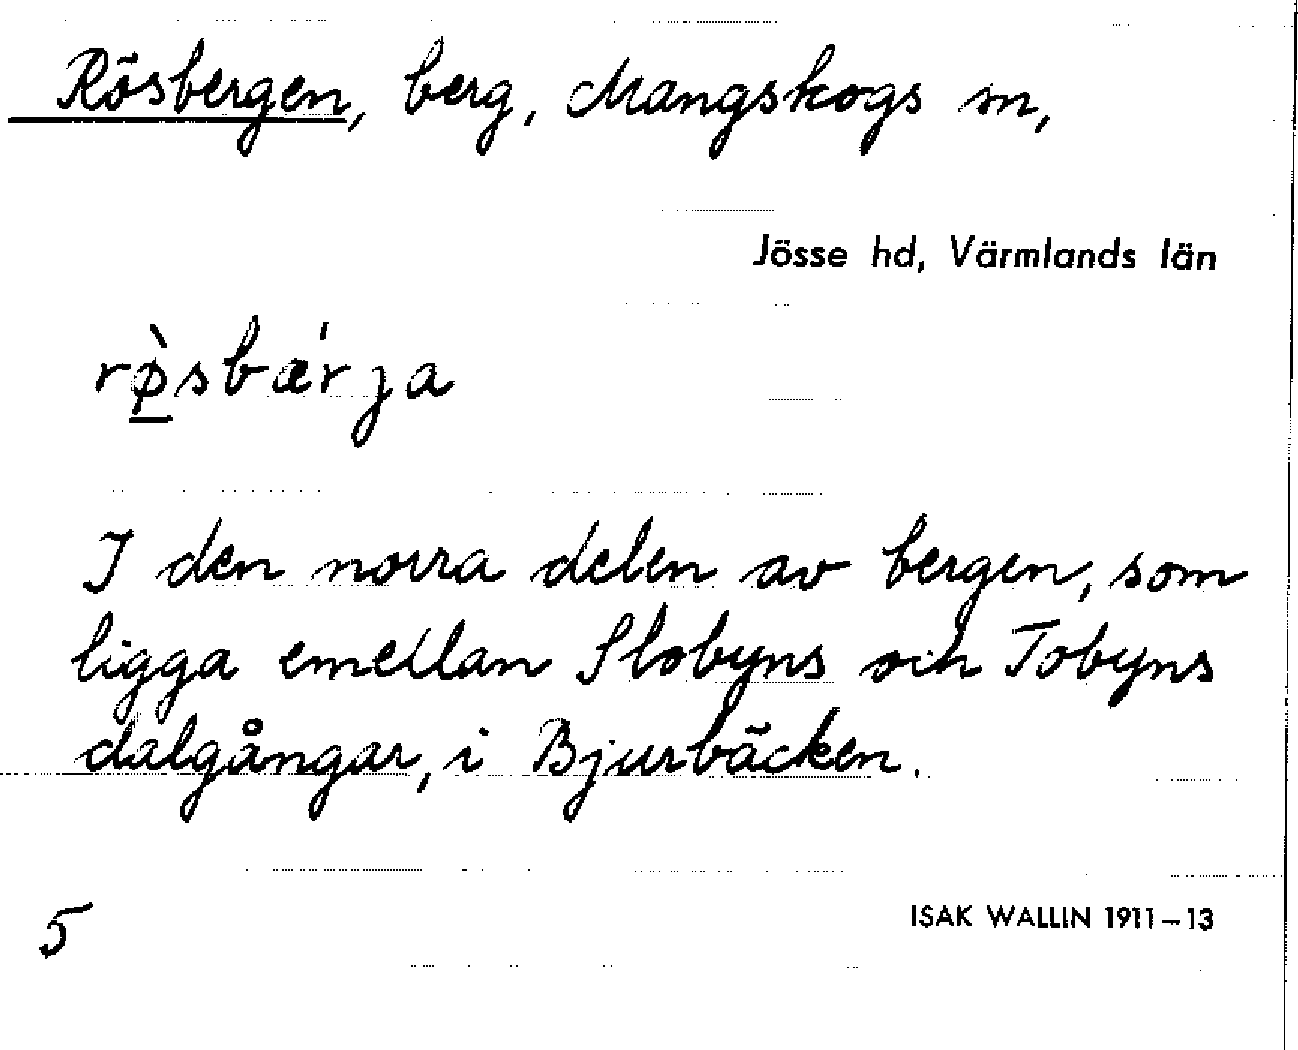 Rösbergen, berg, Mangskogs sn,
Jösse hd, Värmlands län
rø̀sbæ'rja
I den norra delen av bergen, som
ligga emellan Slobyns och Tobyns
dalgångar, i Bjurbäcken.
5
ISAK WALLIN 1911–13